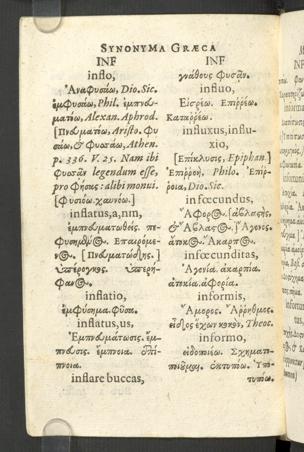 SYNONYMA GRÆCA
INF
inflo,
Ἀναφυσάω, Dio. Sic.
ἐμφυσάω, Phil. ἐμπνευ-
ματίω, Alexan. Aphrod.
[Πνευματίω, Aristo. Φυ
σάω, & Φωσάω, Athen.
p. 336. V. 25. Nam ibi
φυσᾶν legendum esse,
pro φήσης: alibi monui.
[Φυσιόω. χαυνόω.]
inflatus, a, nm,
ἐμπνευματωθείς. πε-
φυσημένος. Επαιρόμε-
νος. [Πνευματώδης.]
ὑπέρογκος. ὑπερή-
φανος.
inflatio,
ἐμφύσημα. φῦσα.
inflatus, us,
Ἐμπνευμάτωσις. ἔμ-
πνευσις. ἔμπνοια. ἐπί-
πνοια.
inflare buccas,
INF
γνάθους φυσᾶν.
influo,
Εἰσρέω. Επιῤῥέω.
Καταῤῥέω.
influxus, influ-
xio,
[Επίκλυσις, Epiphan.]
Ἐπιῤῥοή. Philo. Ἐπίρ-
ῥοια, Dio. Sic.
infœcundus,
Ἄφορος. [ἀβλαςὴς,
& Ἄβλαςος.] Ἄγονος.
ἄτοκος. Ἄκαρπος.
infœcunditas,
Ἀγονία. ἀκαρπία.
ἀτοκία. ἀφορία.
informis,
Ἄμορφος. Ἄῤῥυθμος.
εἶδος ἔχων κακόν, Theoc.
informo,
εἰδοποιέω. Σχηματι-
ποιοῦμαι. ἐκτυπόω. Ὑπο-
τυπόω.